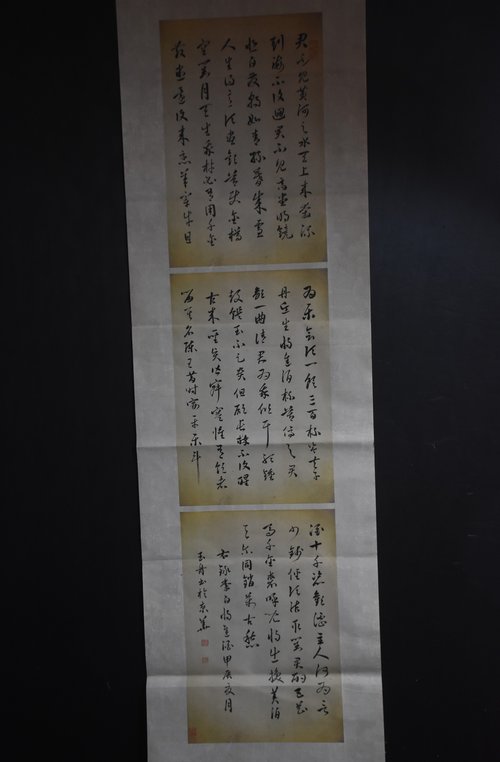 君不见黄河之水天上来奔流
到海不复回君不见高堂明镜
悲白发朝如青丝暮成雪
人生得意须尽欢莫使金樽
空对月天生我材必有用千金
散尽还复来烹羊宰牛且
为乐会须一饮三百杯岑夫子
丹丘生将进酒杯莫停与君
歌一曲请君为我倾耳听钟
鼓馔玉不足贵但愿长醉不复醒
古来圣贤皆寂寞惟有饮者
留其名陈王昔时宴平乐斗
酒十千恣欢谑主人何为言
少钱径须沽取对君酌五花
马千金裘呼儿将出换美酒
与尔同销万古愁
右录李白将进酒甲庚夏月